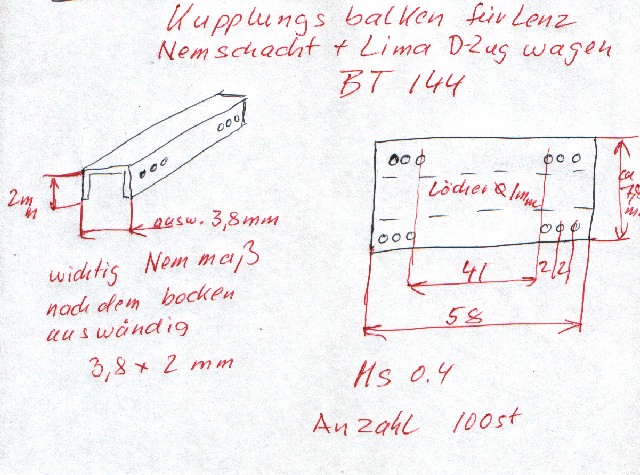 Kupplungs balken für Lenz
Nemschacht + Lima D-Zug wagen
BT 144
2mm
ausw. 3,8mm
wichtig Nem maß
nach dem bocken
auswändig
3,8 x 2 mm
Löcher Ø 1mm
ca
7,8
m
41
2
2
58
Ms 0.4
Anzahl 100st